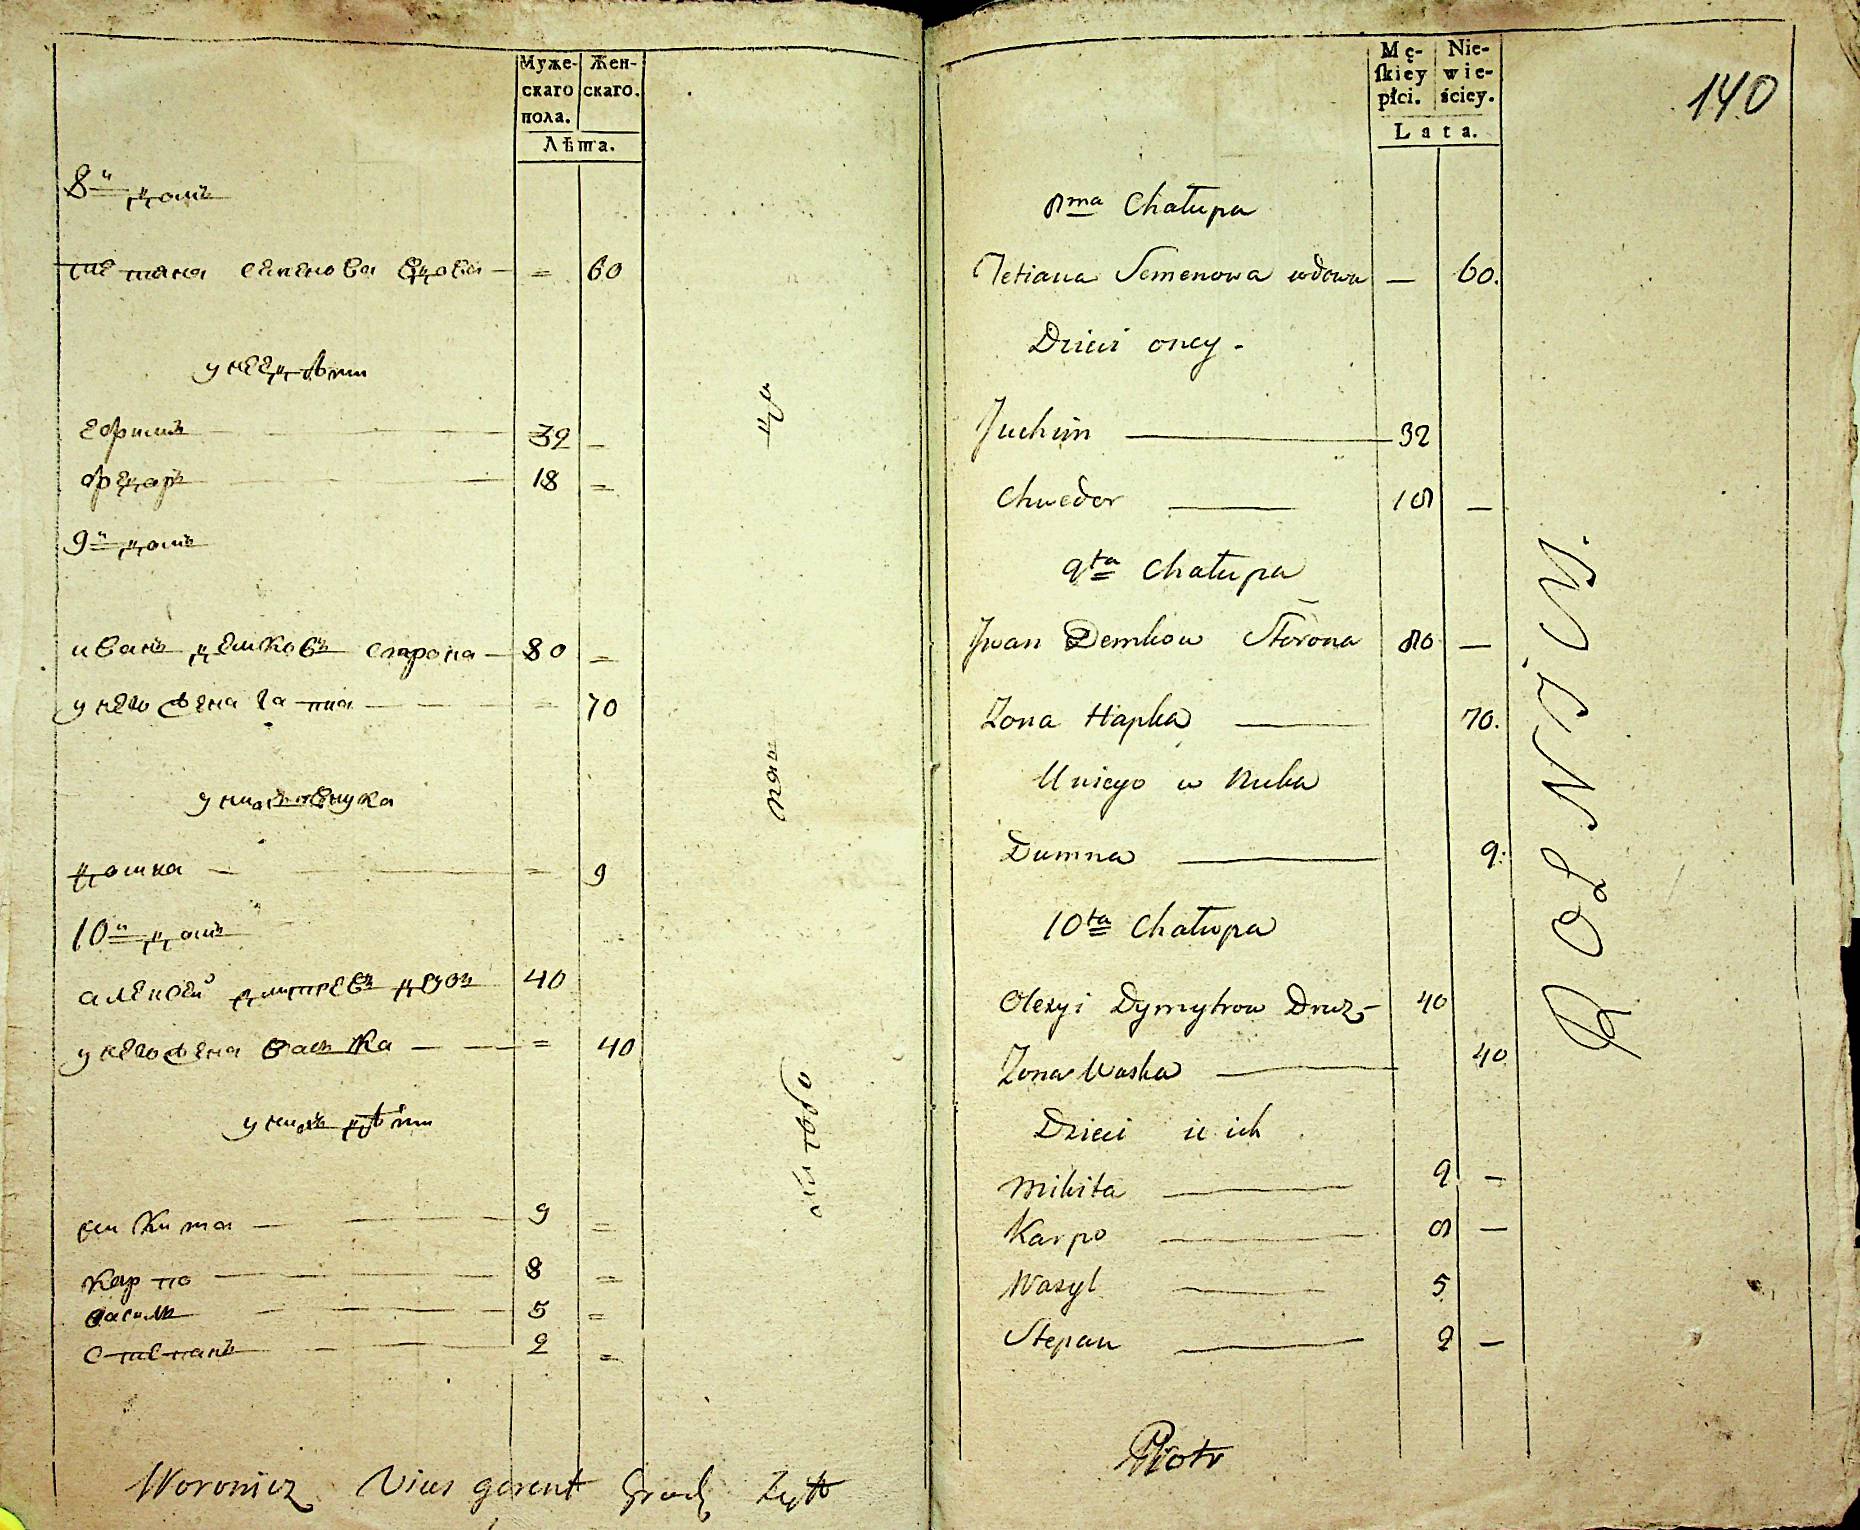 Муже-
скаго
пола.
Жен-
скаго.
Лѣта.
8й домъ
татияна семенова вдова — = 60
у неё дѣти
ефримъ — 32 =
федоръ — 18 =
9й домъ
иванъ демковъ сторона — 80 =
у него жена гапка — = 70
у нихъ внука
домна — = 9
10й домъ
алексей дмитревъ 40
у него жена васка — = 40
у нихъ дѣти
микита — 9 =
карпо — 8 =
василь — 5 =
степанъ — 2 =
Woronicz Vices gerent Grodz Żytt
140
Mę-
ſkiey
płci.
Nie-
wie-
ściey.
Lata.
8ma Chałupa
Tetiana Semenowa wdowa — 60.
Dzieci oney -
Juchim — 32
Chwedor — 18 —
9ta Chałupa
Jwan Demkow Storona 80 —
Zona Hapka — 70.
U niego w Nuka
Dumna — 9.
10ta Chałupa
Olexyi Dymytrow 40
Zona Waska — 40
Dzieci ich
Mikita — 9 —
Karpo — 8 —
Wasyl — 5
Stepan — 2 —
Piotr
ROLNICY.